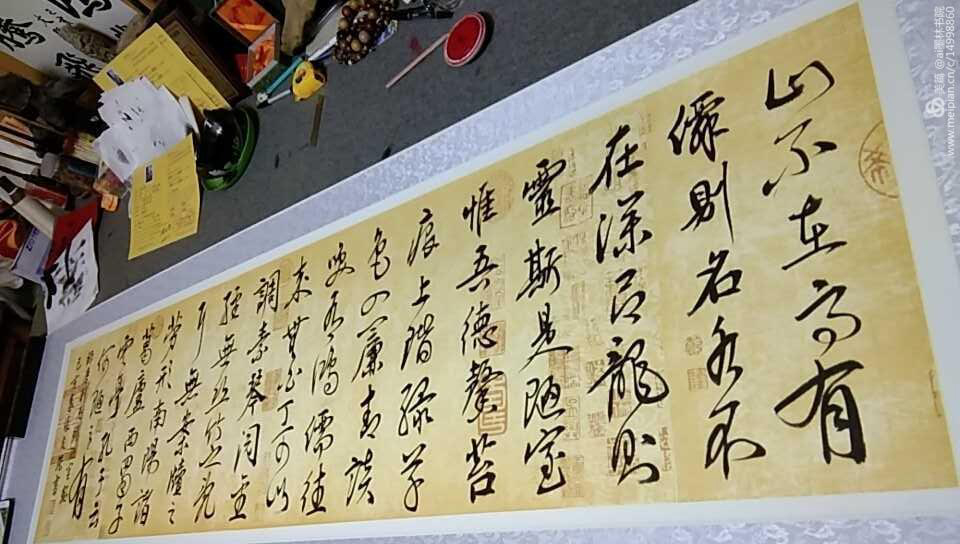 山不在高有
僊則名水不
在深有龍則
靈斯是陋室
惟吾德馨苔
痕上階綠草
色入簾青談
笑有鴻儒往
來無白丁可以
調素琴閱金
經無丝竹之亂
耳無案牘之
勞形南陽諸
葛廬西蜀子
雲亭孔子云
何陋之有
美篇 @ai墨林书院
www.meipian.cn/c/14998860